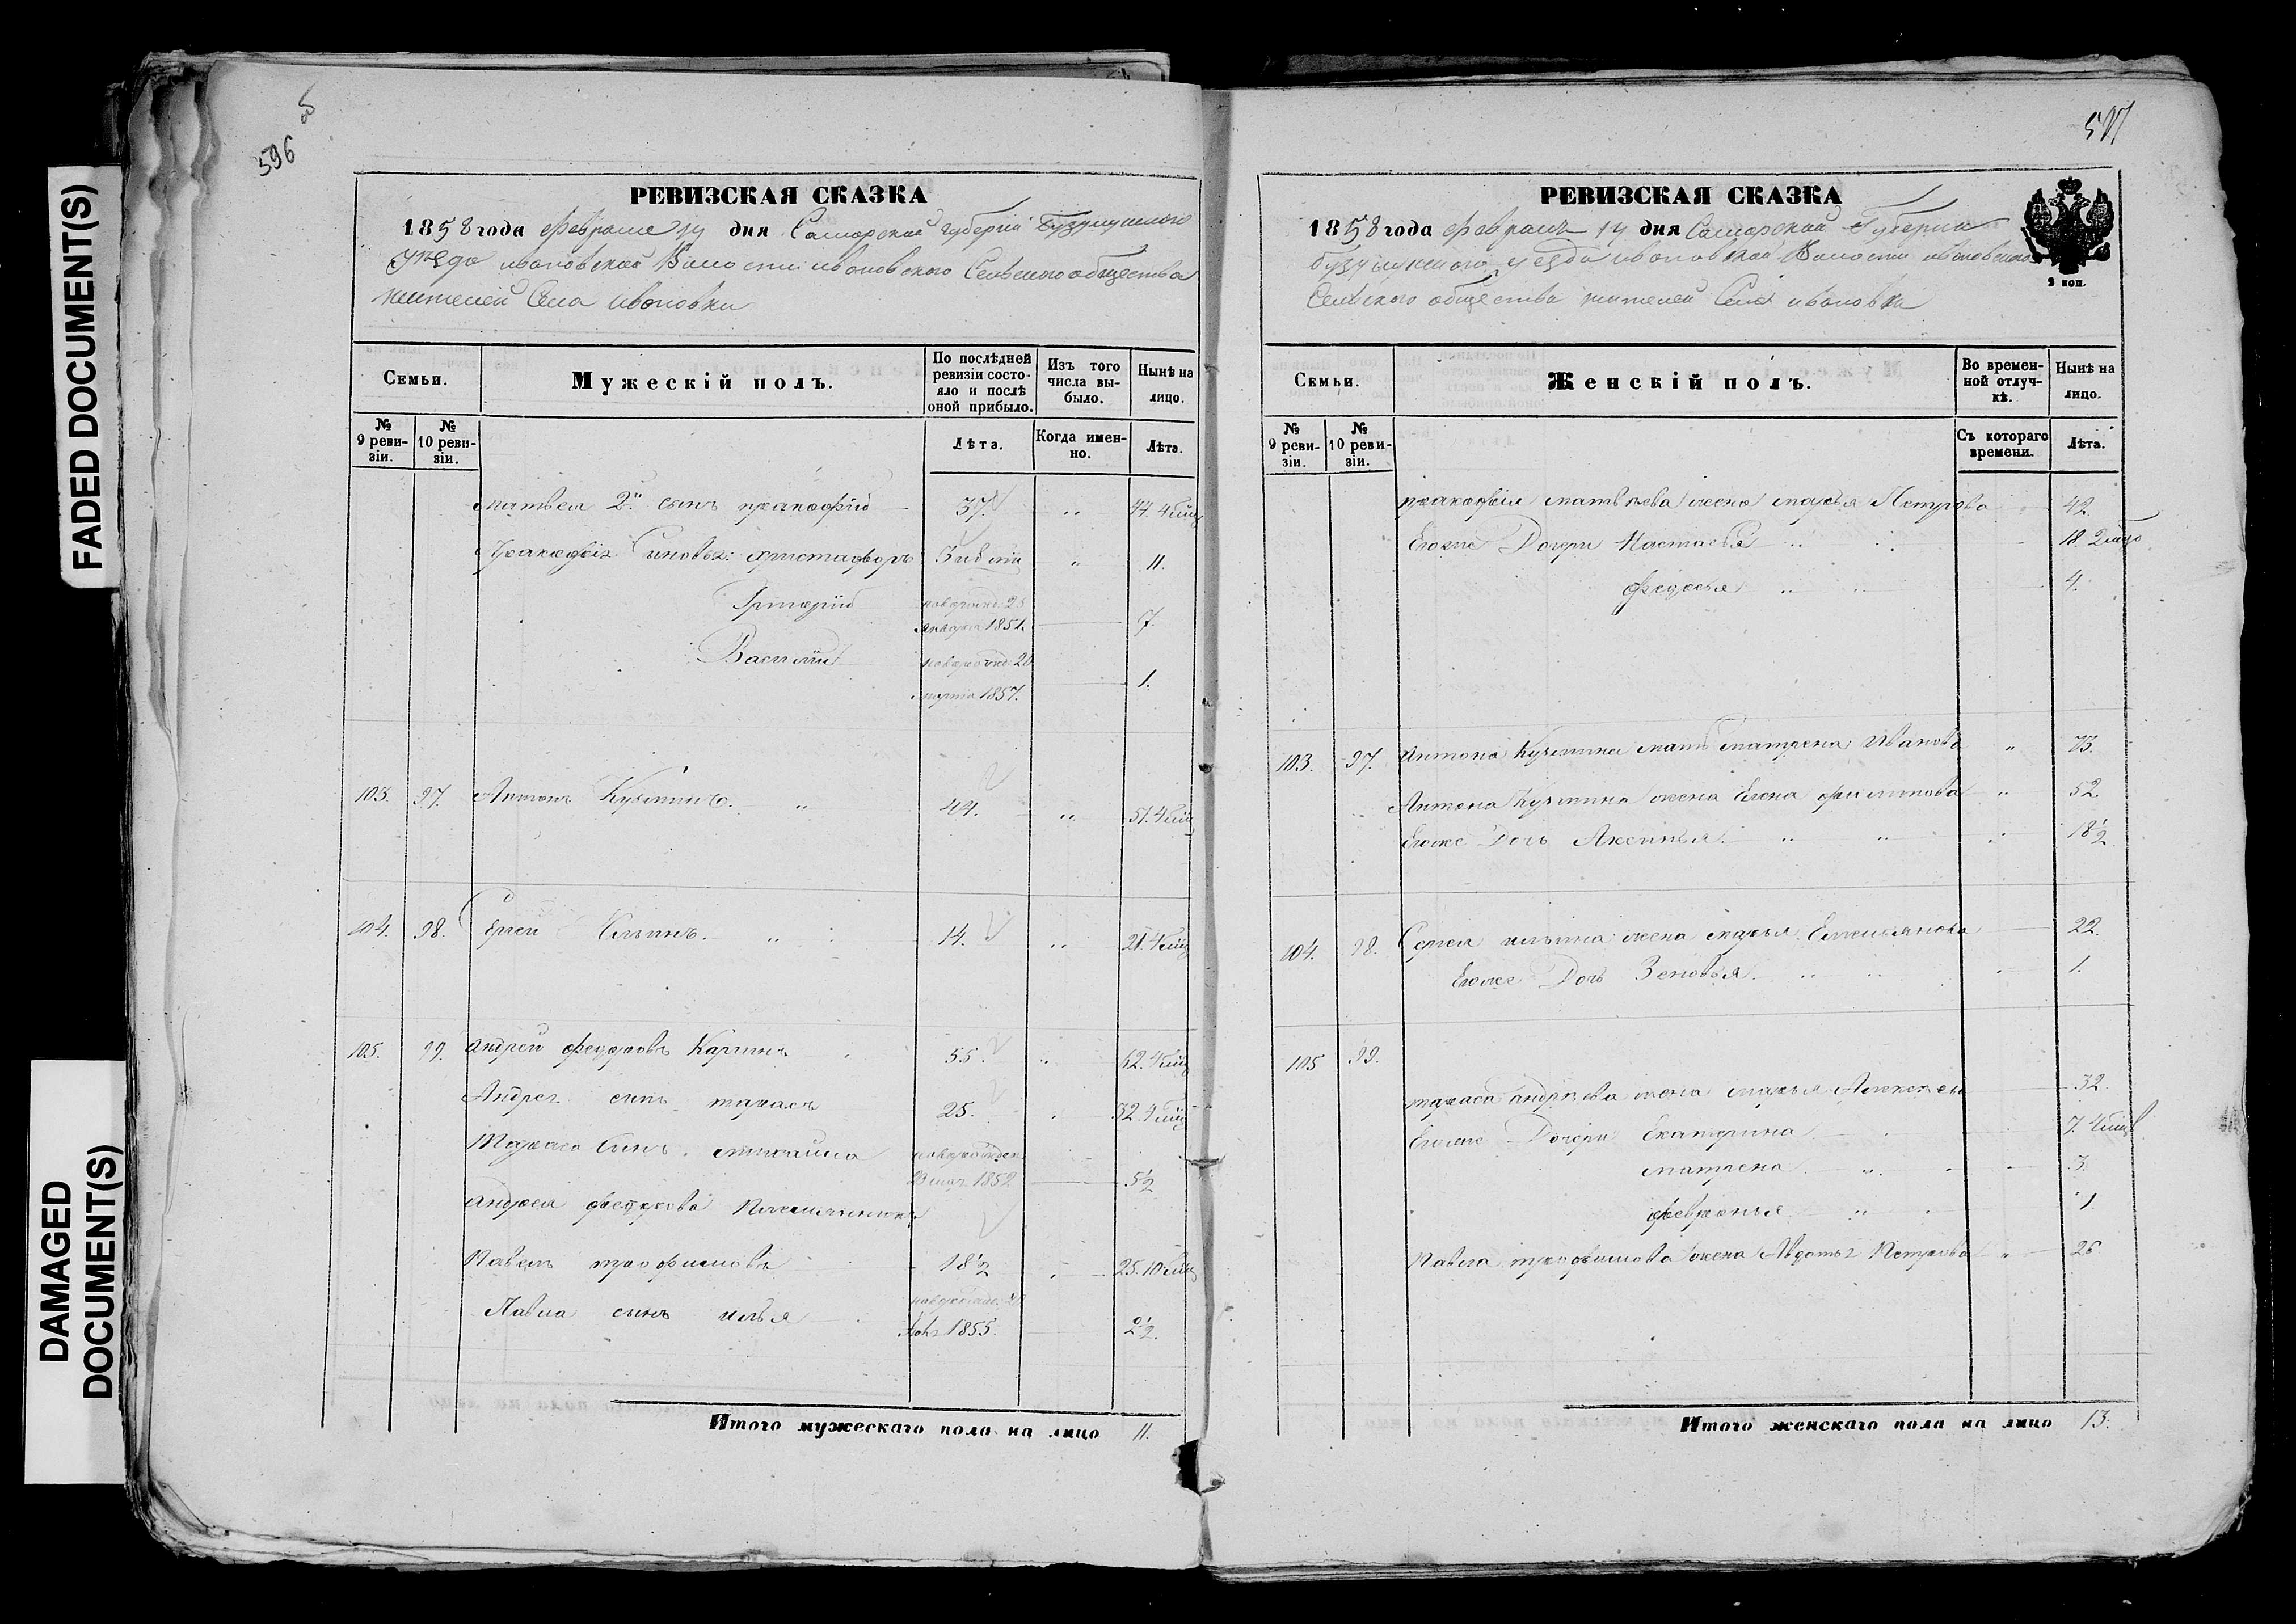 FADED DOCUMENT(S)
DAMAGED
DOCUMENT(S)
596
об
РЕВИЗСКАЯ СКАЗКА
1858 года февраля 14 дня Самарской губернии Бузулукского
уезда ивановской Волости ивановского Сельского общества
жителей Села Ивановки
Семьи.
Мужескій полъ.
По послѣдней ревизіи состояло и послѣ оной прибыло.
Изъ того числа выбыло.
Нынѣ на лицо.
№ 9 ревизіи.
№ 10 ревизіи.
Лѣта.
Когда именно.
Лѣта.
матвея 2й сынъ пракофій 37. " 44. 4
Пракофія Сыновья: христафоръ 3 " 11.
Григорій новорожд. 25 января 1851. 7.
Василій новорожд. 20 марта 1857. 1.
103. 97. Антонъ Кузминъ. " 44. " 51. 4
104. 98. Сергей Ильинъ. " 14. " 21. 4
105. 99. андрей федоровъ Каргинъ 55. " 62. 4
Андрея сынъ тарасъ 25. 32. 4
Тараса Сынъ новорожден 1852 5½
андрея федорова племянникъ
Павелъ трофимовъ 18½ 25. 10
Павла сынъ илья 1855. 2½.
Итого мужескаго пола на лицо 11.
597
РЕВИЗСКАЯ СКАЗКА
1858 года февраля 14 дня Самарской Губернии
бузулукского уезда ивановской Волости ивановского
Сельского общества жителей Села ивановки
2 коп.
Семьи.
Женскій полъ.
Во временной отлучкѣ.
Нынѣ на лицо.
№ 9 ревизіи.
№ 10 ревизіи.
Съ котораго времени.
Лѣта.
пракофія матвѣева жена марья Петрова 42.
Егоже Дочери Настасья " 18. 2
федосья " 4.
103. 97. Антона Кузмина мать матрена Иванова " 73.
Антона Кузмина жена Елена филипова " 52.
Егоже Дочь Аксинья. " " 18½
104. 98. Сергея ильина жена марья Емельянова 22.
Егоже Дочь Зеновья. " 1.
105 99.
тараса андрѣева жена марья Алексеева 32.
Егоже Дочери Екатерина 7. 4
матрена. " 3.
февронья " 1
Павла трофимова жена Авдотья Петрова " 26
Итого женскаго пола на лицо 13.